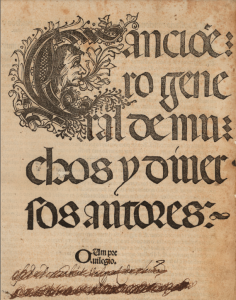 Canciōe-
ro gene
ral de mu-
chos y diuer
sos autores:~
Cum pre
uilegio.